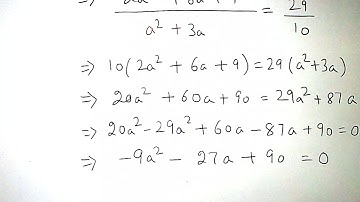 a² + 3a = 29/10
⇒ 10(2a² + 6a + 9) = 29(a² + 3a)
⇒ 20a² + 60a + 90 = 29a² + 87a
⇒ 20a² - 29a² + 60a - 87a + 90 = 0
⇒ -9a² - 27a + 90 = 0